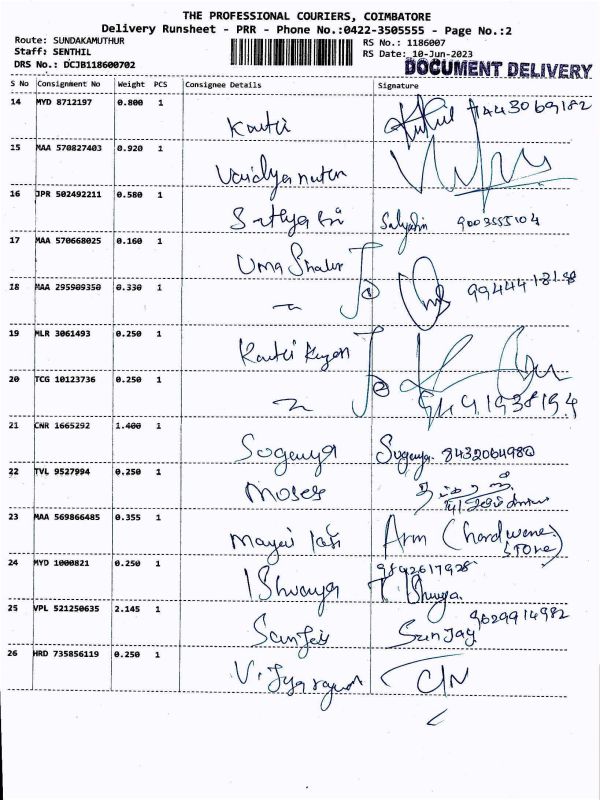 THE PROFESSIONAL COURIERS, COIMBATORE
Delivery Runsheet - PRR - Phone No.:0422-3505555 - Page No.:2
Route: SUNDAKAMUTHUR
RS No.: 1186007
Staff: SENTHIL
RS Date: 10-Jun-2023
DRS No.: DCJB118600702
DOCUMENT DELIVERY
S No Consignment No Weight PCS Consignee Details Signature
14 MYD 8712197 0.800 1
9443069182
15 MAA 570827403 0.920 1
Vaidyanathan
16 JPR 502492211 0.580 1
Sathya 9003555104
17 MAA 570668025 0.160 1
Uma
18 MAA 295909350 0.330 1
19 MLR 3061493 0.250 1
20 TCG 10123736 0.250 1
21 CNR 1665292 1.400 1
Sugenya Sugenya. 8432064980
22 TVL 9527994 0.250 1
Moses
23 MAA 569866485 0.355 1
Arm (hardware store)
24 MYD 1000821 0.250 1
9842617928
Ishwarya
25 VPL 521250635 2.145 1
9629914982
Sanjay Sanjay
26 HRD 735856119 0.250 1